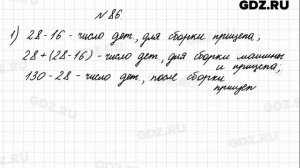 GDZ.RU
№ 86.
1) 28-16 - число дет, для сборки прицепа;
28+(28-16) - число дет, для сборки машины
и прицепа;
130-28 - число дет, после сборки
прицеп